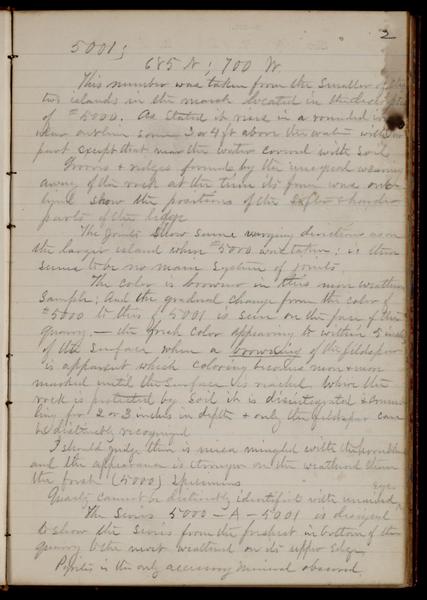 2
5001;
685 N; 700 W.
This number was taken from the smaller of the
two islands in the marsh located in the description
of #5000. As stated it rises in a rounded
some 3 or 4 ft above the water with
part except that near the water covered with soil.
Grooves & ridges formed by the unequal wearing
away of the rock at the time its form was
show the positions of the softer & harder
parts of the ledge
The joints show same varying directions as on
the larger island where #5000 was taken: i.e. there
seems to be no main system of joints
The color is browner in this more weathered
sample; And the gradual change from the color of
#5000 to this of 5001 is seen on the face of the
quarry. — the fresh color appearing to within 5 inches
of the surface where a browning of the feldspar
is apparent which coloring becomes more & more
marked until the surface is reached. Where the
rock is protected by soil it is disintegrated & crumbling
for 2 or 3 inches in depth & only the feldspar can
be distinctly recognized
I should judge there is mica mingled with the hornblende
and the appearance is stronger on the weathered than
the fresh (5000) specimens
Quartz cannot be distinctly identified with unaided eye.
The Series 5000 – A – 5001 is designed
to show the series from the freshest in bottom of the
quarry to the most weathered on its upper edge.
Pyrites is the only accessory mineral observed.